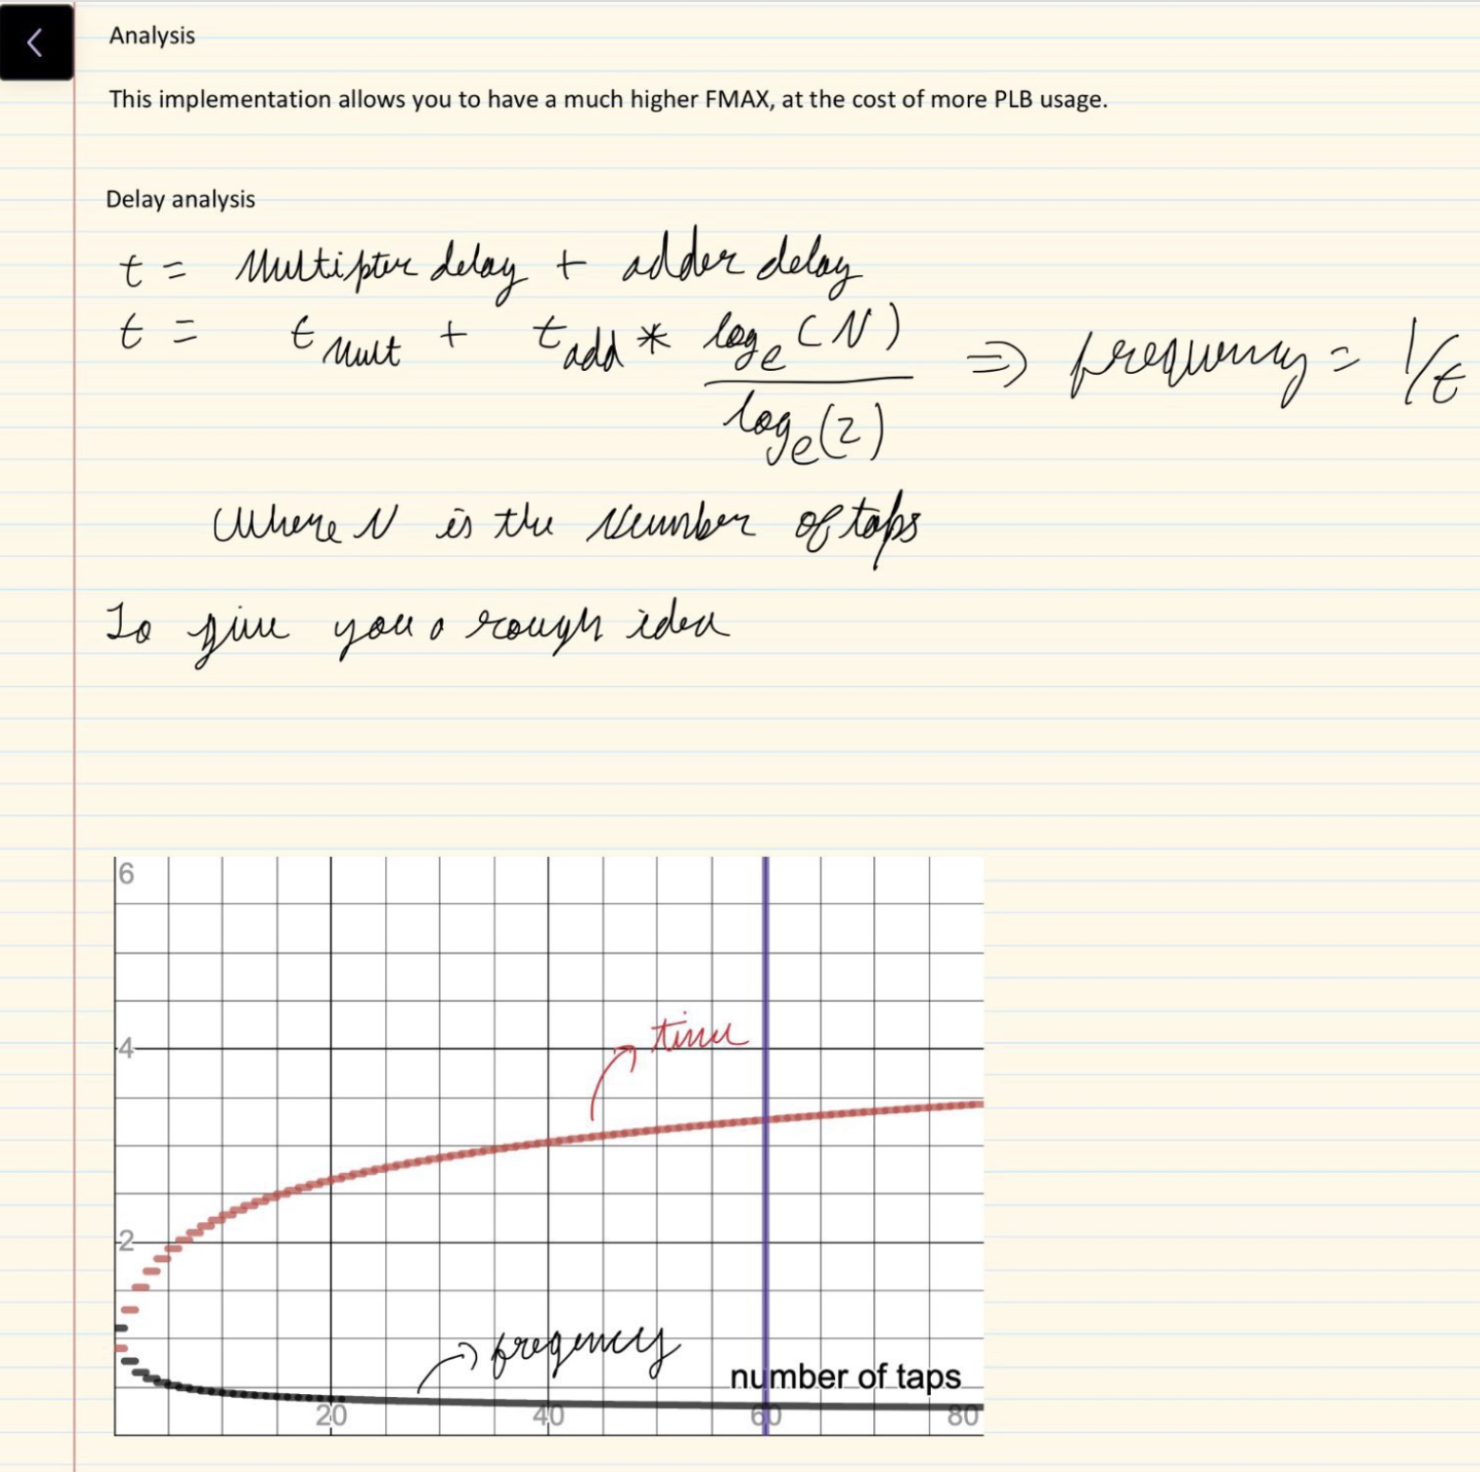 Analysis
This implementation allows you to have a much higher FMAX, at the cost of more PLB usage.
Delay analysis
t = Multipter delay + adder delay
t = t Mult + t add * log e (N) / log e (2) ⇒ frequency = 1/t
Where N is the Number of taps
To give you a rough idea
6
4
time
2
freqency
number of taps
20 40 60 80